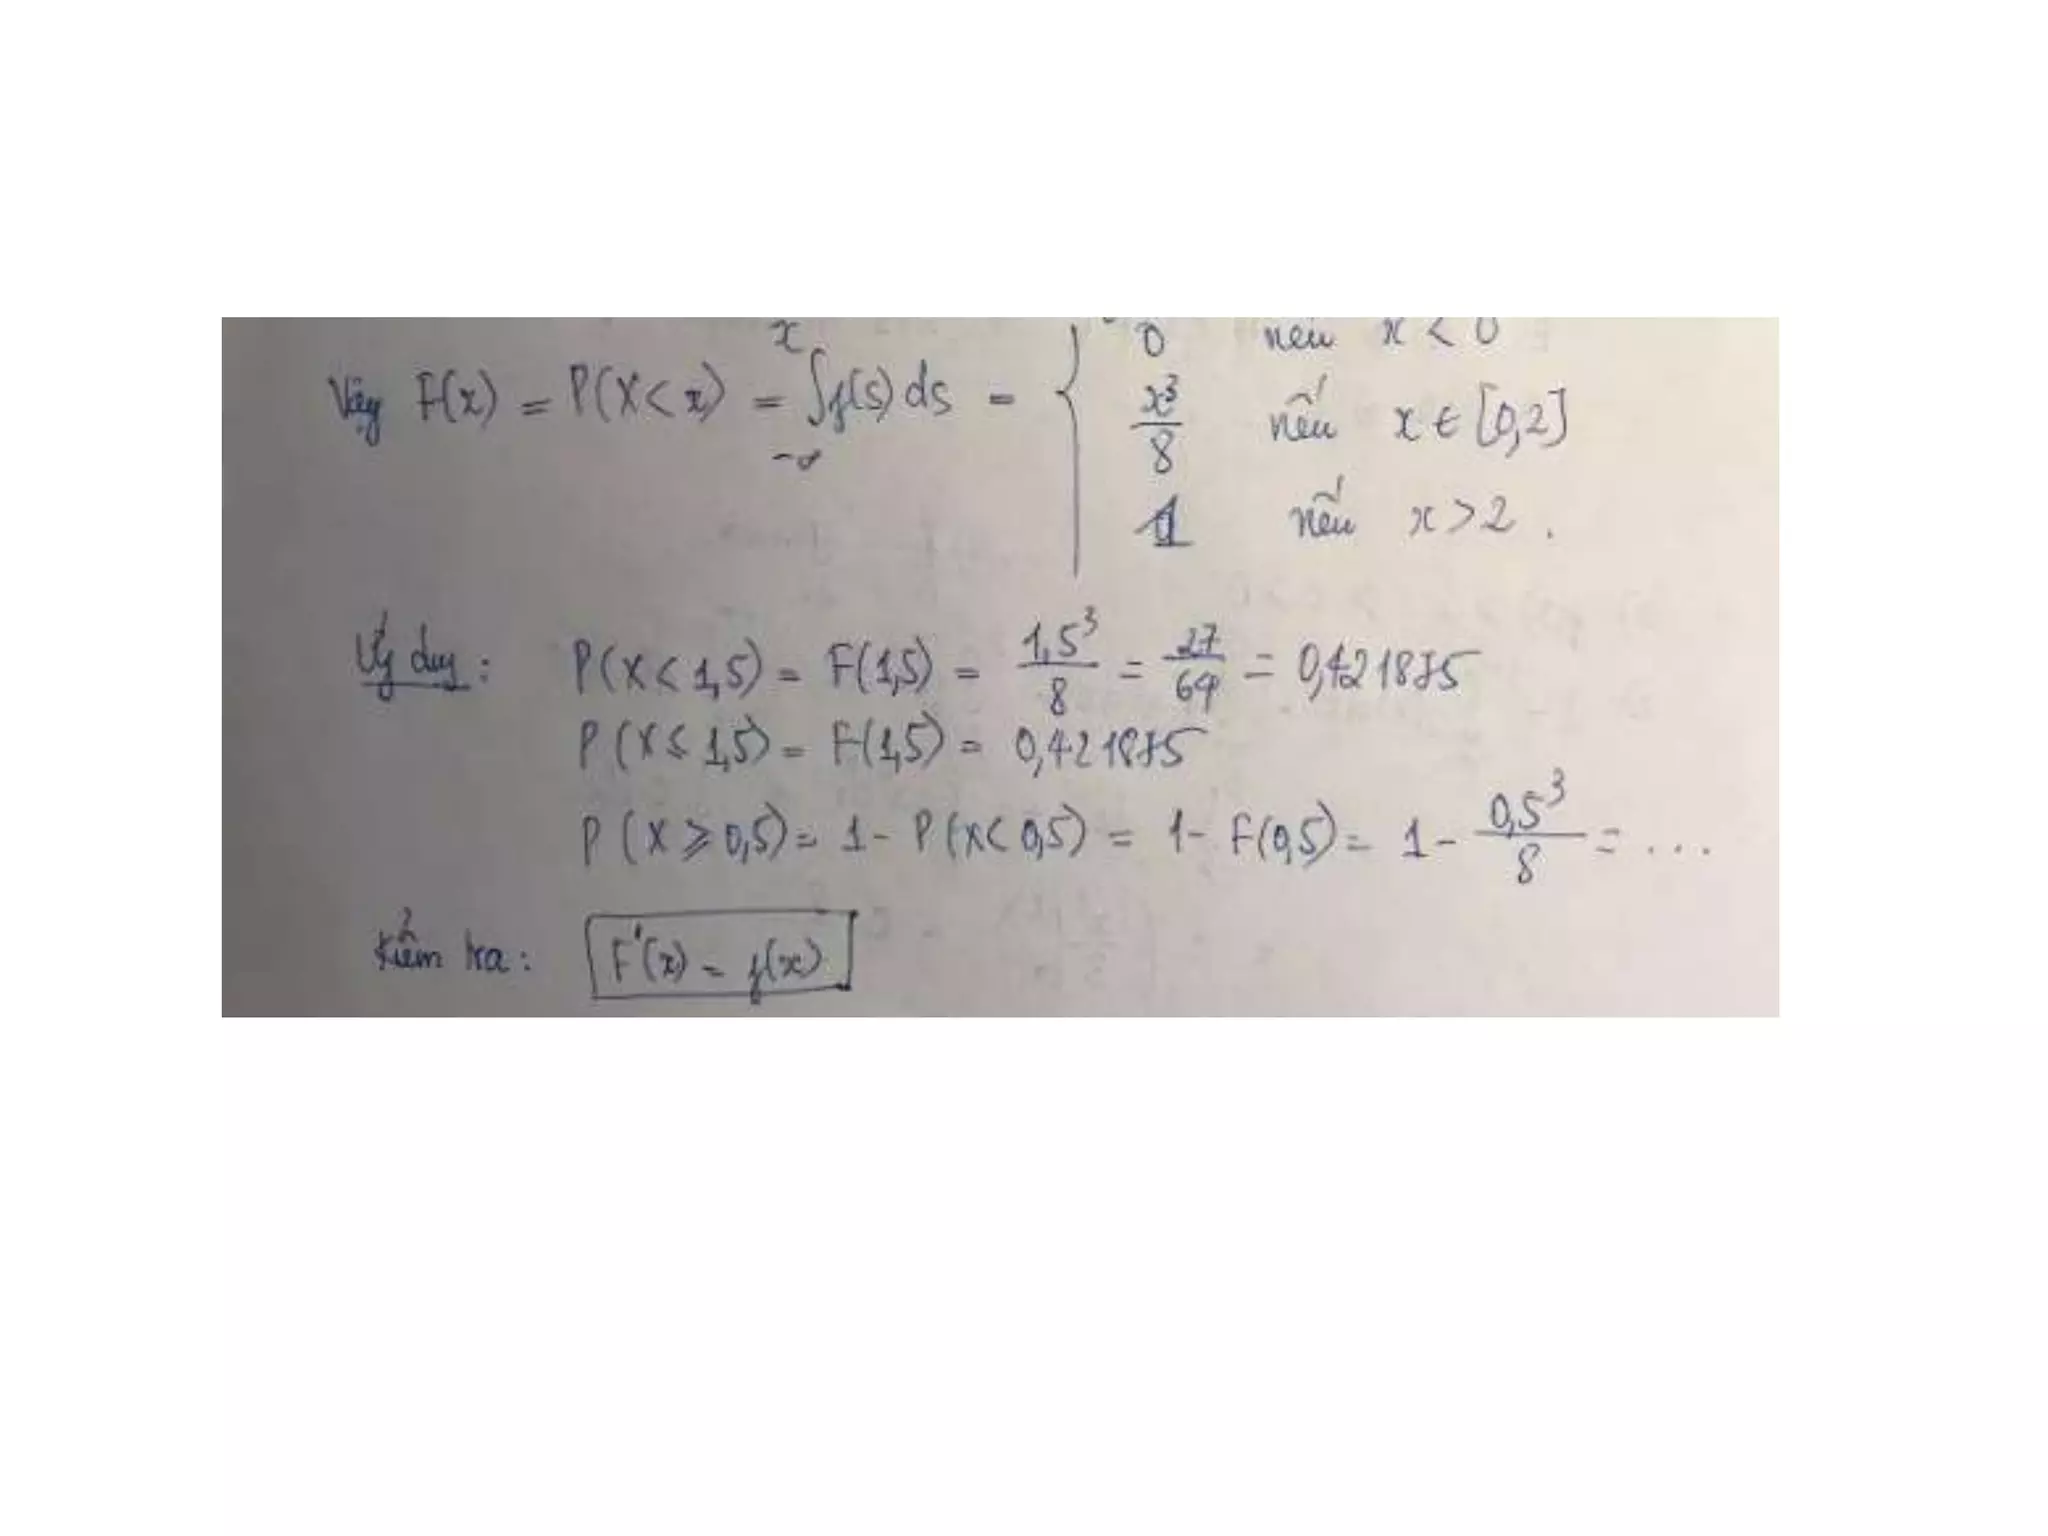 Vậy F(x) = P(X < x) = ∫_{-∞}^{x} f(s) ds = { 0 nếu x < 0
x³/8 nếu x ∈ [0,2]
1 nếu x > 2 .
Ứng dụng : P(X < 1,5) = F(1,5) = 1,5³/8 = 27/64 = 0,421875
P(X ≤ 1,5) = F(1,5) = 0,421875
P(X ≥ 0,5) = 1 - P(X < 0,5) = 1 - F(0,5) = 1 - 0,5³/8 = ...
Kiểm tra : F'(x) = f(x)